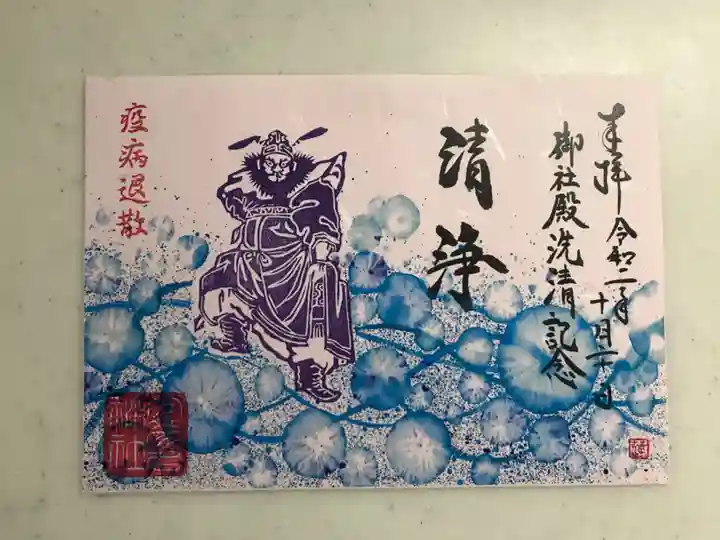 奉拝 令和二年
十月二十日
御社殿洗清記念
清浄
疫病退散